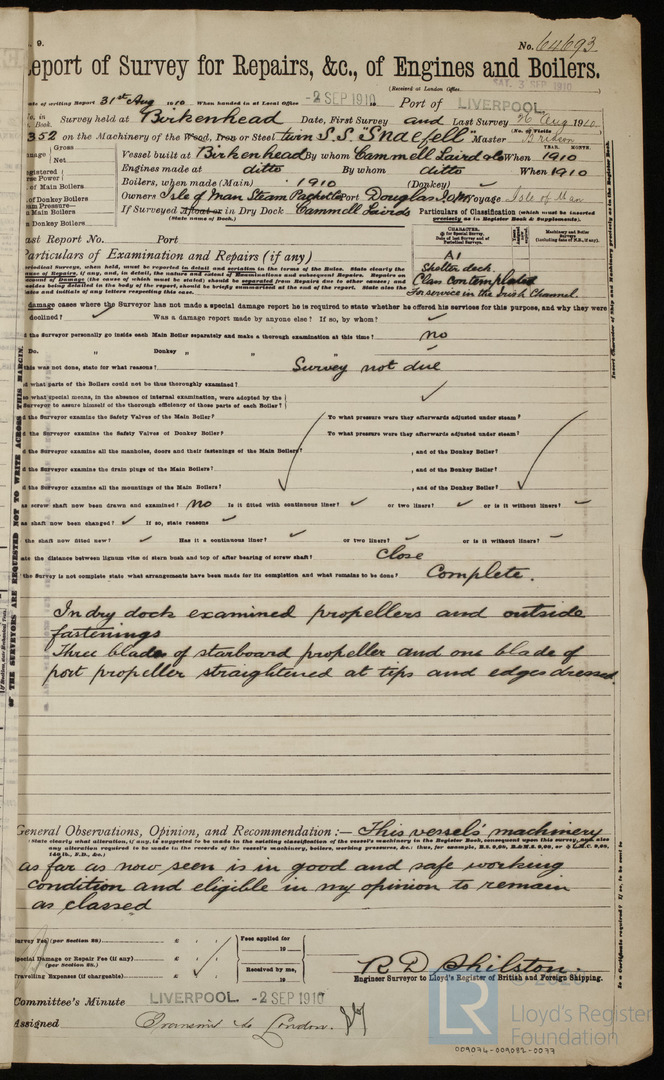 9.
No. 64693
Report of Survey for Repairs, &c., of Engines and Boilers.
(Received at London Office
SAT. 3 SEP 1910
Date of writing Report 31st Aug 1910 When handed in at Local Office -2 SEP 1910 Port of LIVERPOOL
No. in Survey held at Birkenhead Date, First Survey and Last Survey 26th Aug 1910
Book. (No. of Visits
352 on the Machinery of the Wood, Iron or Steel twin S.S. "Snaefell" Master Bridson
Gross
Net
Vessel built at Birkenhead By whom Cammell Laird & Co When 1910
YEAR. MONTH.
Engines made at ditto By whom ditto When 1910
Boilers, when made (Main) 1910 (Donkey)
of Main Boilers
Owners Isle of Man Steam Packet Co Port Douglas I.O.M. Voyage Isle of Man
of Donkey Boilers
If Surveyed Afloat or in Dry Dock Cammell Lairds
(State name of Dock.)
Particulars of Classification (which must be inserted precisely as in Register Book & Supplements).
Main Boilers
Donkey Boilers
Last Report No. Port
Particulars of Examination and Repairs (if any)
CHARACTER.
Machinery and Boiler Surveys
A1
Shelter deck
Class contemplated
For service in the Irish Channel.
damage cases where the Surveyor has not made a special damage report he is required to state whether he offered his services for this purpose, and why they were
declined? Was a damage report made by anyone else? If so, by whom?
the Surveyor personally go inside each Main Boiler separately and make a thorough examination at this time? no
Do. " Donkey " " "
this was not done, state for what reasons? Survey not due
what parts of the Boilers could not be thus thoroughly examined?
what special means, in the absence of internal examination, were adopted by the
Surveyor to assure himself of the thorough efficiency of those parts of each Boiler?
the Surveyor examine the Safety Valves of the Main Boiler? To what pressure were they afterwards adjusted under steam?
the Surveyor examine the Safety Valves of Donkey Boiler? To what pressure were they afterwards adjusted under steam?
the Surveyor examine all the manholes, doors and their fastenings of the Main Boilers? , and of the Donkey Boiler?
the Surveyor examine the drain plugs of the Main Boilers? , and of the Donkey Boiler?
the Surveyor examine all the mountings of the Main Boilers? , and of the Donkey Boiler?
screw shaft now been drawn and examined? no Is it fitted with continuous liner? or two liners? or is it without liners?
shaft now been changed? If so, state reasons
the shaft now fitted new? Has it a continuous liner? or two liners? or is it without liners?
the distance between lignum vitæ of stern bush and top of after bearing of screw shaft? Close
the Survey is not complete state what arrangements have been made for its completion and what remains to be done? Complete.
In dry dock examined propellers and outside
fastenings
Three blades of starboard propeller and one blade of
port propeller straightened at tips and edges dressed.
General Observations, Opinion, and Recommendation:— This vessel's machinery
as far as now seen is in good and safe working
condition and eligible in my opinion to remain
as classed
Survey Fee (per Section 28) £ Fees applied for
19
Special Damage or Repair Fee (if any) £
(per Section 28.)
Received by me,
19
Travelling Expenses (if chargeable) £
R D Shilston.
Engineer Surveyor to Lloyd's Register of British and Foreign Shipping.
Committee's Minute LIVERPOOL. -2 SEP 1910
Assigned Transmit to London.
LR
Lloyd's Register
Foundation
009074-009082-0077
OF THE SURVEYORS ARE REQUESTED NOT TO WRITE ACROSS THIS MARGIN.
Insert Character of Ship and Machinery precisely as in the Register Book.